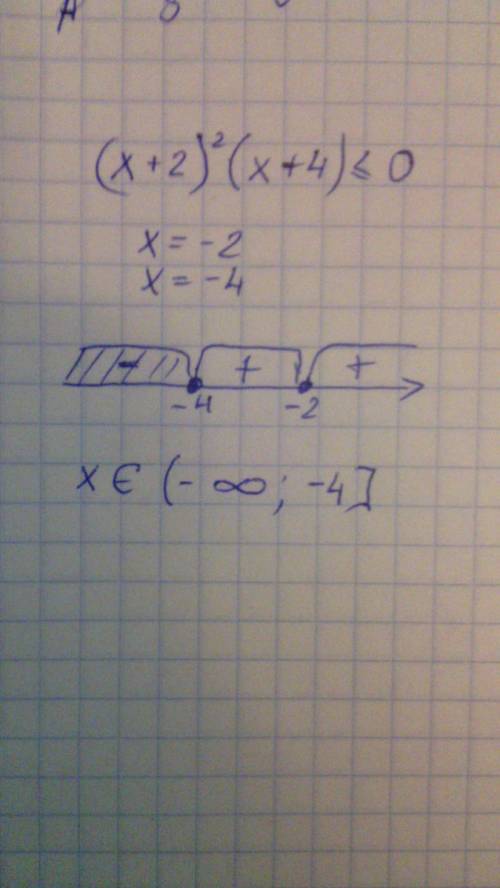 (x+2)²(x+4)≤0
x=-2
x=-4
- + +
-4 -2
x∈(-∞;-4]